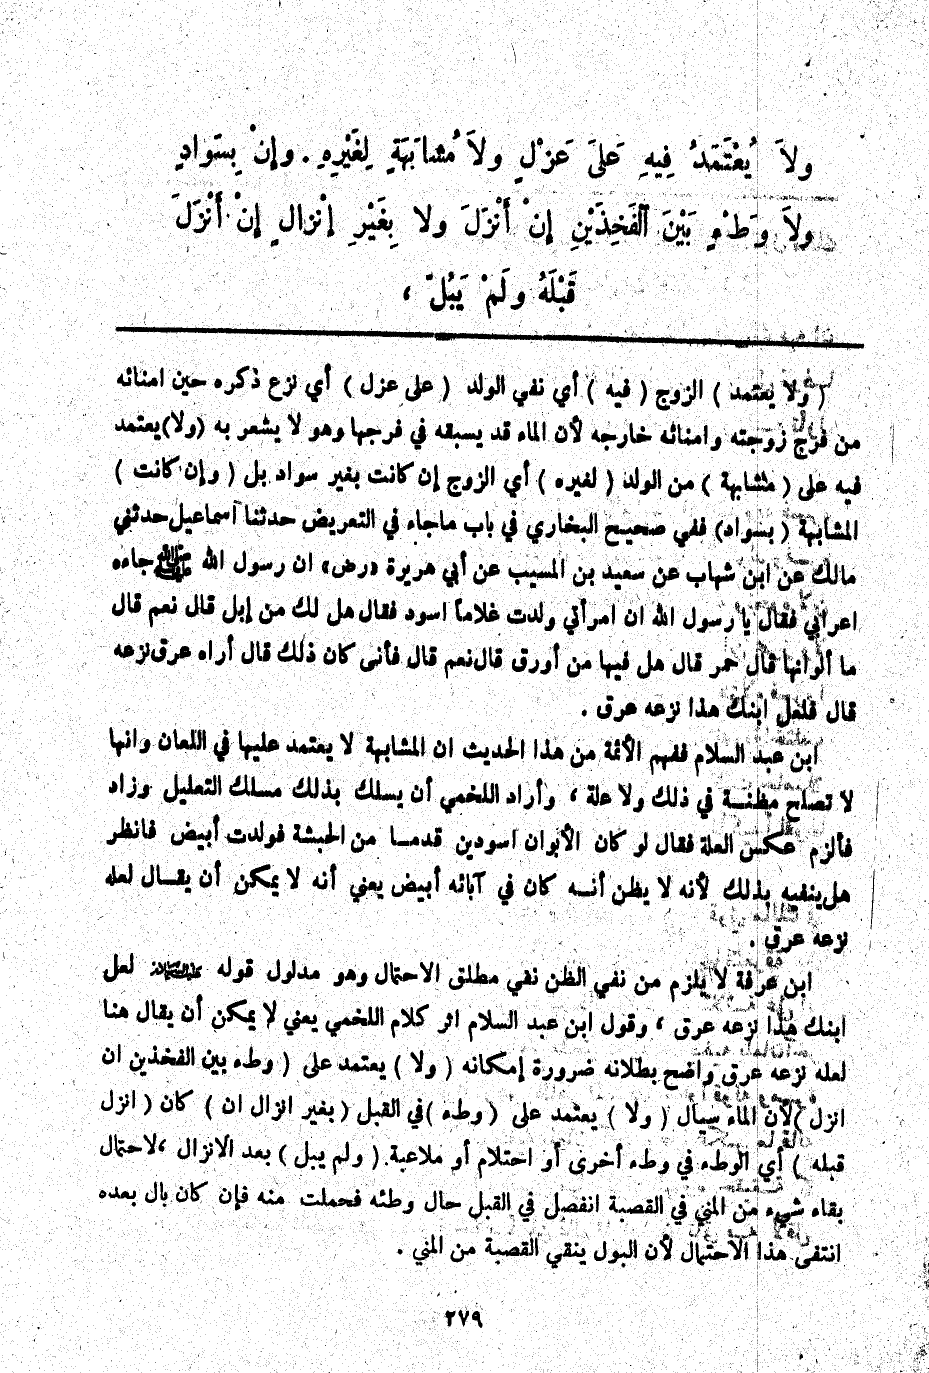 ولاَ يُعْتَمَدُ فِيهِ عَلىَ عَزْلٍ ولاَ مُشابَهَةٍ لِغَيْرِهِ . وإنْ بِسَوادٍ
ولاَ وَطْءٍ بَيْنَ الْفَخِذَيْنِ إنْ أَنْزَلَ ولا بِغَيْرِ إنْزالٍ إنْ أَنْزَلَ
قَبْلَهُ ولَمْ يَبُلْ ،
( ولا يعتمد ) الزوج ( فيه ) أي نفي الولد ( على عزل ) أي نزع ذكره حين امنائه
من فرج زوجته وامنائه خارجه لأن الماء قد يسبقه في فرجها وهو لا يشعر به (ولا)يعتمد
فيه على ( مشابهة ) من الولد ( لغيره ) أي الزوج إن كانت بغير سواد بل ( وإن كانت )
المشابهة ( بسواد) ففي صحيح البخاري في باب ماجاء في التعريض حدثنا اسماعيل حدثني
مالك عن ابن شهاب عن سعيد بن المسيب عن أبي هريرة «رض» ان رسول الله ﷺ جاءه
اعرابي فقال يا رسول الله ان امرأتي ولدت غلاماً اسود فقال هل لك من إبل قال نعم قال
ما ألوانها قال حمر قال هل فيها من أورق قال نعم قال فأنى كان ذلك قال أراه عرق نزعه
قال فلعل ابنك هذا نزعه عرق .
ابن عبد السلام ففهم الأئمة من هذا الحديث ان المشابهة لا يعتمد عليها في اللعان وانها
لا تصلح مظنــة في ذلك ولا علة ، وأراد اللخمي أن يسلك بذلك مسلك التعليل وزاد
فألزم عكس العلة فقال لو كان الأبوان اسودين قدمــا من الحبشة فولدت أبيض فانظر
هل ينفيه بذلك لأنه لا يظن أنــه كان في آبائه أبيض يعني أنه لا يمكن أن يقــال لعله
نزعه عرق .
ابن عرفة لا يلزم من نفي الظن نفي مطلق الاحتمال وهو مدلول قوله ﷺ لعل
ابنك هذا نزعه عرق ، وقول ابن عبد السلام اثر كلام اللخمي يعني لا يمكن أن يقال هنا
لعله نزعه عرق واضح بطلانه ضرورة إمكانه ( ولا ) يعتمد على ( وطء بين الفخذين ان
انزل )لأن الماء سيال ( ولا ) يعتمد على ( وطء )في القبل ( بغير انزال ان ) كان ( انزل
قبله ) أي الوطء في وطء أخرى أو احتلام أو ملاعبة ( ولم يبل ) بعد الانزال ،لاحتمال
بقاء شيء من المني في القصبة انفصل في القبل حال وطئه فحملت منه فإن كان بال بعده
انتفى هذا الاحتمال لأن البول ينقي القصبة من المني .
٢٧٩